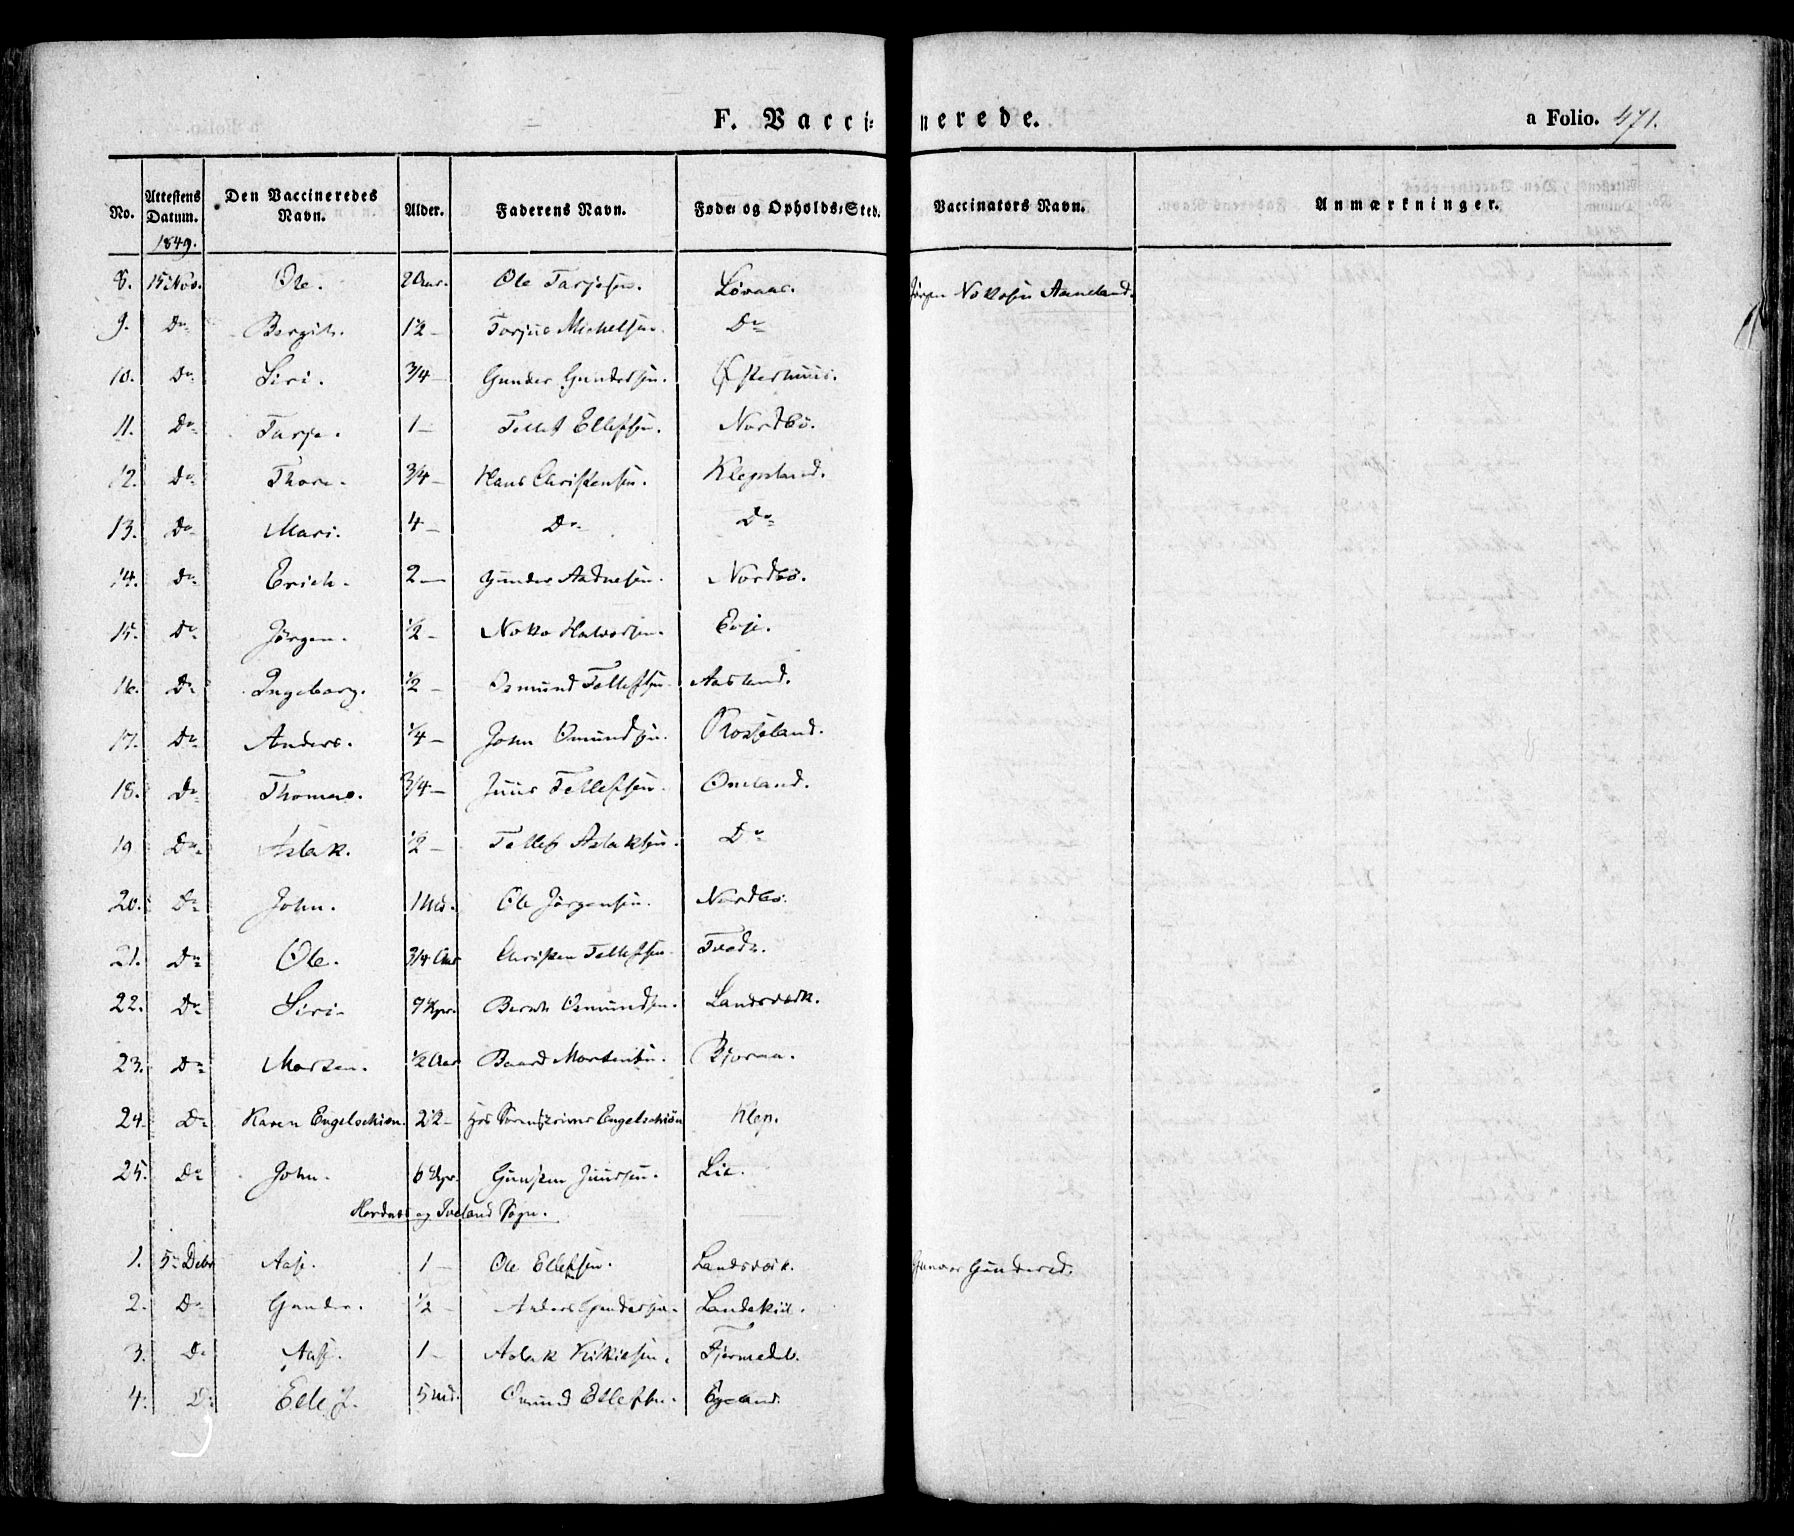 F. Vaccinerede.
a Folio. 471.
No. Attestens Datum. Den Vaccineredes Navn. Alder. Faderens Navn. Føde og Opholds-Sted. Vaccinators Navn. Anmærkninger.
1849.
8. 15 Nov. Ole. 2 Aar. Ole Tarjesen. Løvaas. Jörgen Aaneland.
9. Do Bergit. 1½ Tarjue Michelsen. Do
10. Do Siri. 3/4 Gunder Gundersen. Østerhuus.
11. Do Tarje. 1 Tellef Ellefsen. Nordbö.
12. Do Thore. 3/4 Hans Christensen. Klepsland.
13. Do Mari. 4 Do Do
14. Do Erich. 2 Gunder Aadnesen. Nordbö.
15. Do Jörgen. ½ Halvorsen. Evje.
16. Do Ingeborg. ½ Osmund Tellefsen Aasland.
17. Do Anders. ¼ John Osmundsen. Rosseland.
18. Do Thomas. 3/4 Juus Tellefsen. Omland.
19 Do Aslak. ½ Tellef Aslaksen. Do
20. Do John. 1 Md. Ole Jörgensen. Nordbö.
21. Do Ole. 3/4 Aar Christen Tellefsen
22. Do Siri 9 Uger. Bernt Osmundsen. Landsverk.
23. Do Morten. ½ Aar Baard Mortensen.
24. Do Karen Engelschiøn. 2½ Hrr Sorenskriver Engelschiön Klep.
25. Do John. 6 Uger. Gunsten Juussen. Lie.
Hordnes og Iveland Sogn.
1. 5 Debr Aase. 1 Ole Ellefsen. Landsverk. Gunderesd.
2. Do Gunder. ½ Anders Gundersen.
3. Do Aase. 1 Aslak Fjermedal.
4. Do Ellef. 5 Md. Osmund Ellefsen. Egeland.